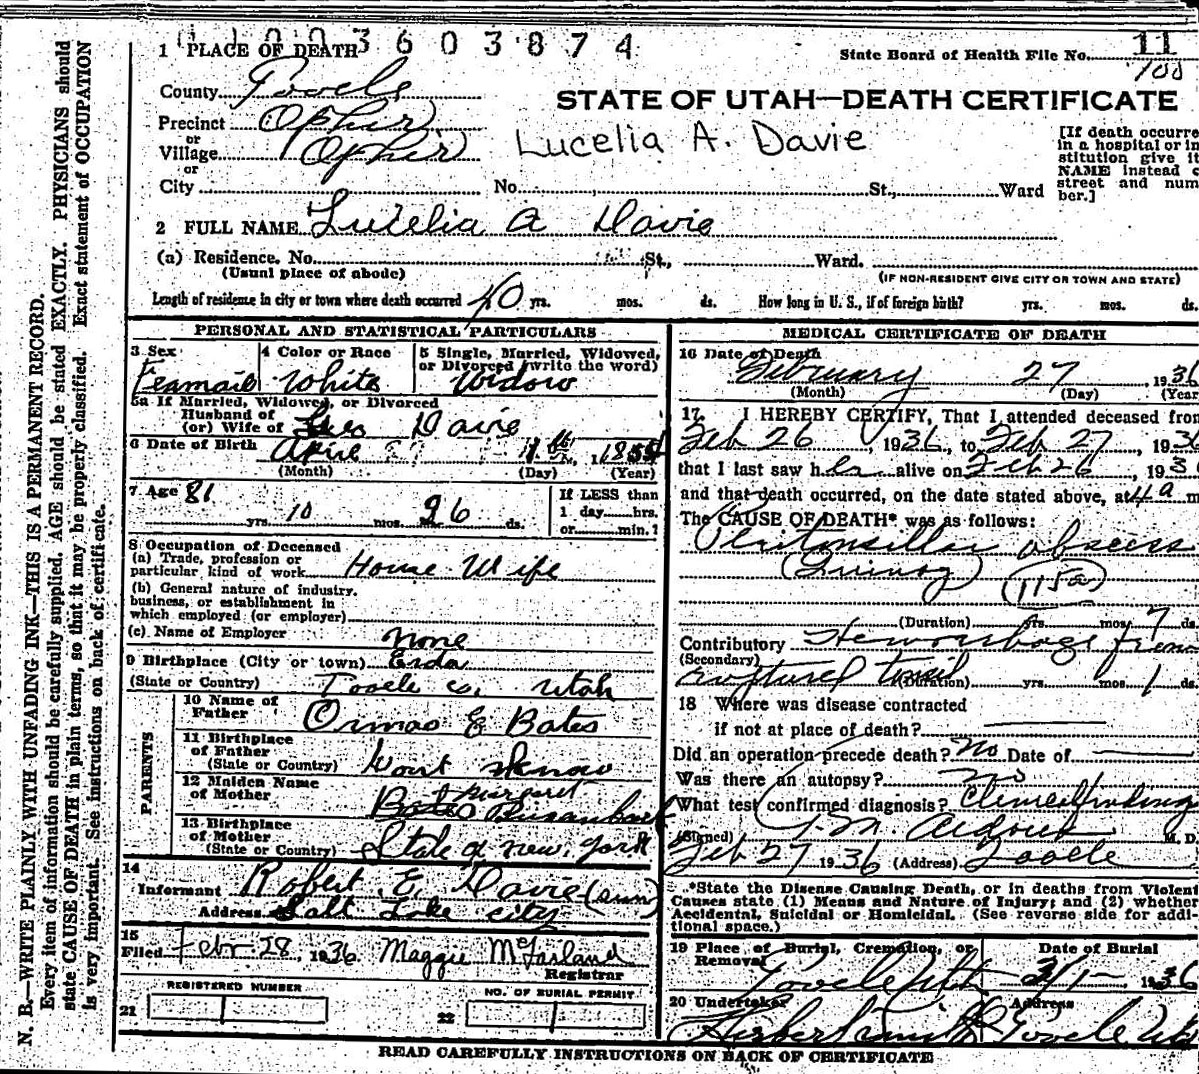 1 PLACE OF DEATH 1 0 0 3 6 0 3 8 7 4
State Board of Health File No. 11
100
County Tooele
STATE OF UTAH—DEATH CERTIFICATE
Precinct Ophir
or
Village Ophir
Lucelia A. Davie
[If death occurre
in a hospital or in
stitution give it
NAME instead o
street and num
ber.]
or
City No. St., Ward
2 FULL NAME Lucelia A Davie
(a) Residence. No. St., Ward.
(Usual place of abode) (IF NON-RESIDENT GIVE CITY OR TOWN AND STATE)
Length of residence in city or town where death occurred 40 yrs. mos. ds. How long in U. S., if of foreign birth? yrs. mos. ds.
PERSONAL AND STATISTICAL PARTICULARS
3 Sex
Feamail
4 Color or Race
White
5 Single, Married, Widowed,
or Divorced (write the word)
Widow
5a If Married, Widowed, or Divorced
Husband of
(or) Wife of Davie
6 Date of Birth April 1
(Month) (Day) (Year)
7 Age 81
yrs. 10 mos. 26 ds.
If LESS than
1 day hrs.
or min.?
8 Occupation of Deceased
(a) Trade, profession or
particular kind of work House Wife
(b) General nature of industry,
business, or establishment in
which employed (or employer)
(c) Name of Employer none
9 Birthplace (City or town) Erda
(State or Country) Tooele co. Utah
PARENTS
10 Name of
Father Ormas E Bates
11 Birthplace
of Father
(State or Country) Dont Know
12 Maiden Name
of Mother Margaret
13 Birthplace
of Mother
(State or Country) State of New York
14
Informant Robert E. Davie (sun)
Address Salt Lake city
15
Filed Febr 28, 1936 Maggie McFarland
Registrar
REGISTERED NUMBER
21
NO. OF BURIAL PERMIT
22
MEDICAL CERTIFICATE OF DEATH
16 Date of Death
February 27, 1936
(Month) (Day) (Year
17 I HEREBY CERTIFY, That I attended deceased from
Feb 26, 1936, to Feb 27, 193
that I last saw her alive on Feb 26, 193
and that death occurred, on the date stated above, at 4 a m
The CAUSE OF DEATH* was as follows:
Peritonsillar abscess
(Quinsy) (115a)
(Duration) yrs. mos. 7 ds.
Contributory Hemorrhage from
(Secondary)
ruptured tonsil (Duration) yrs. mos. 1 ds.
18 Where was disease contracted
if not at place of death?
Did an operation precede death? No Date of
Was there an autopsy? No
What test confirmed diagnosis? Clinical finding
(Signed) J. M. M. D.
Feb 27 1936 (Address) Tooele
*State the Disease Causing Death, or in deaths from Violent
Causes state (1) Means and Nature of Injury; and (2) whether
Accidental, Suicidal or Homicidal. (See reverse side for addi
tional space.)
19 Place of Burial, Cremation, or
Removal
Tooele Utah
Date of Burial
3/1-, 1936
20 Undertaker Address
Tooele Utah
READ CAREFULLY INSTRUCTIONS ON BACK OF CERTIFICATE
N. B.—WRITE PLAINLY WITH UNFADING INK—THIS IS A PERMANENT RECORD.
Every item of information should be carefully supplied. AGE should be stated EXACTLY. PHYSICIANS should
state CAUSE OF DEATH in plain terms, so that it may be properly classified. Exact statement of OCCUPATION
is very important. See instructions on back of certificate.